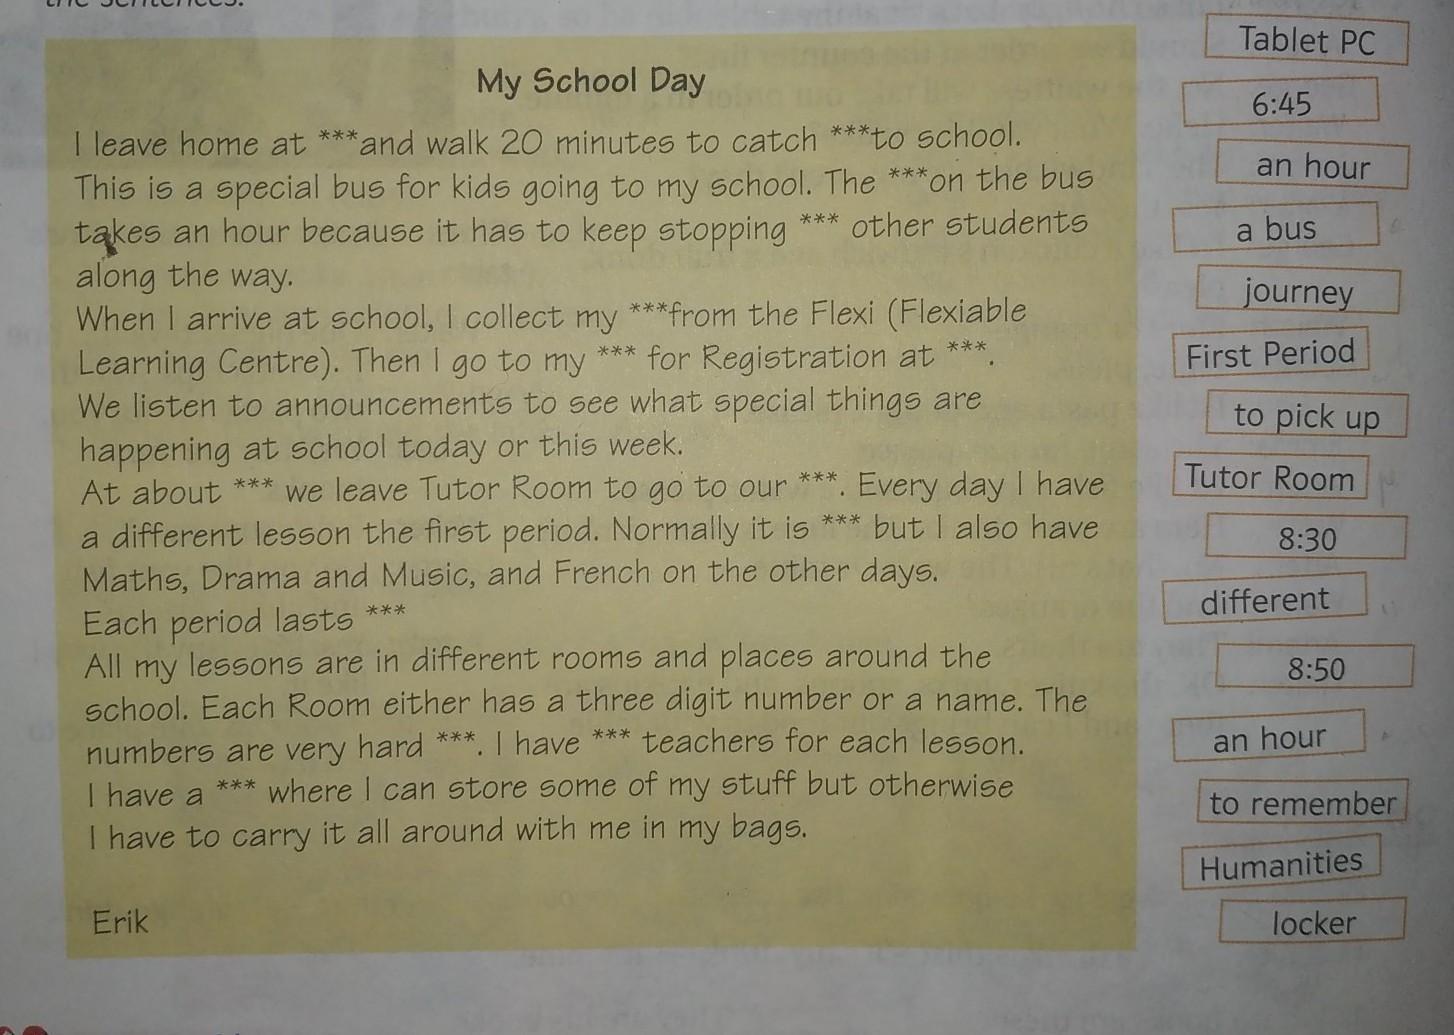 the sentences.
My School Day
I leave home at ***and walk 20 minutes to catch ***to school.
This is a special bus for kids going to my school. The ***on the bus
takes an hour because it has to keep stopping *** other students
along the way.
When I arrive at school, I collect my ***from the Flexi (Flexiable
Learning Centre). Then I go to my *** for Registration at ***.
We listen to announcements to see what special things are
happening at school today or this week.
At about *** we leave Tutor Room to go to our ***. Every day I have
a different lesson the first period. Normally it is *** but I also have
Maths, Drama and Music, and French on the other days.
Each period lasts ***
All my lessons are in different rooms and places around the
school. Each Room either has a three digit number or a name. The
numbers are very hard ***. I have *** teachers for each lesson.
I have a *** where I can store some of my stuff but otherwise
I have to carry it all around with me in my bags.
Erik
Tablet PC
6:45
an hour
a bus
journey
First Period
to pick up
Tutor Room
8:30
different
8:50
an hour
to remember
Humanities
locker